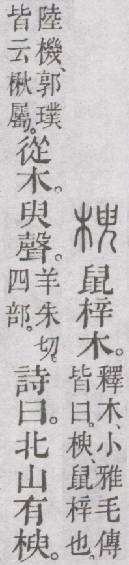 楰 鼠梓木。
釋木、小雅毛傳
皆曰。楰、鼠梓也。
陸機、郭璞
皆云楸屬。
從木。臾聲。
羊朱切。
四部。
詩曰。北山有楰。